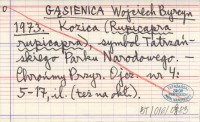 GĄSIENICA Wojciech Byrcyn
1973. Kozica (Rupicapra
rupicapra), symbol Tatrzań-
skiego Parku Narodowego. -
Chrońmy Przyr. Ojcz. nr 4:
5-17, il. (też na okł.).